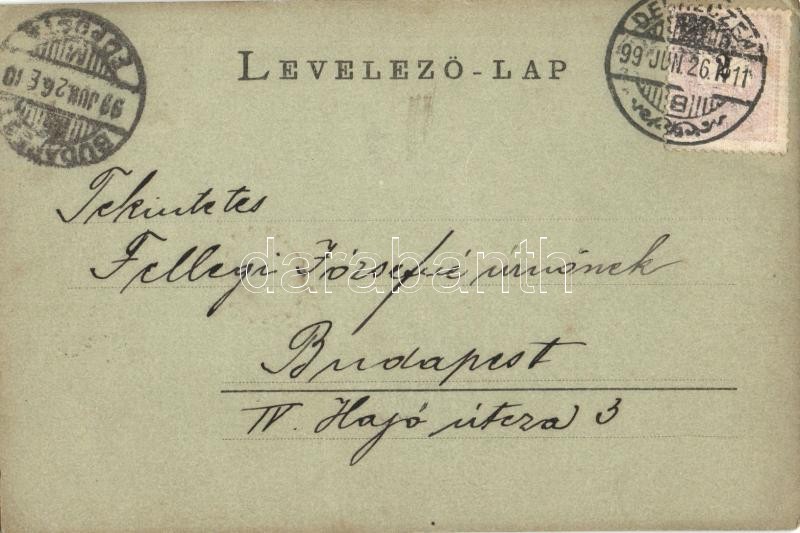 LEVELEZŐ-LAP
DEBRECZEN
99 JUN. 26.
B
BUDAPEST
99 JUN. 26
Tekintetes
Fellegi Józsefné úrnőnek
Budapest
IV. Hajó útcza 3
darabanth